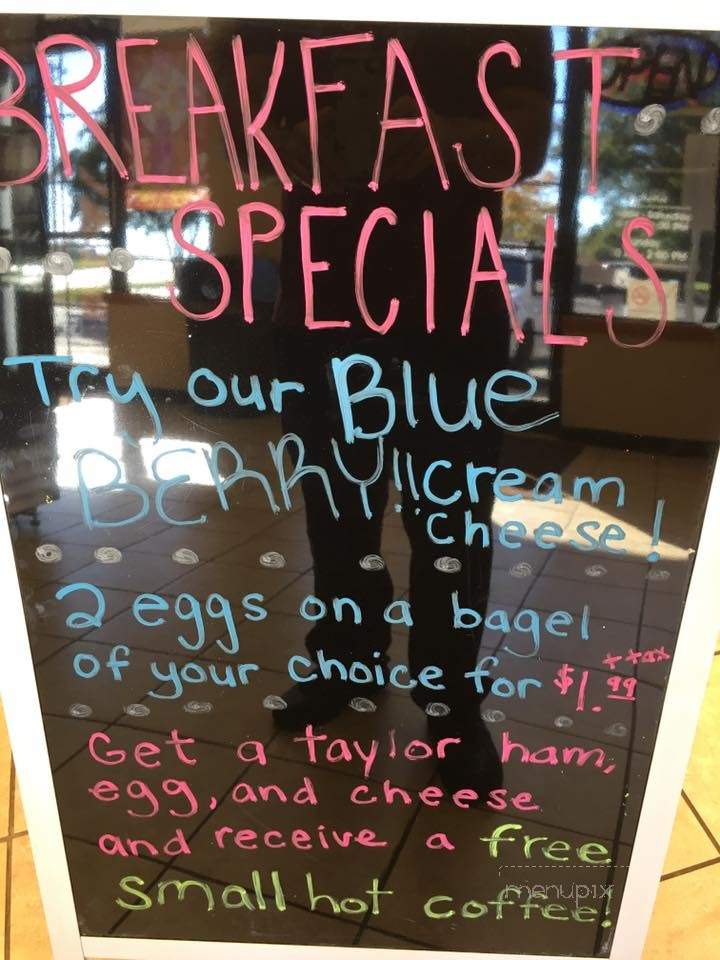 BREAKFAST
OPEN
SPECIALS
Try our Blue
BERRY!! Cream
Cheese!
2 eggs on a bagel
of your choice for $1.99 +tax
Get a taylor ham,
egg, and cheese
and receive a free
small hot coffee!
menupix